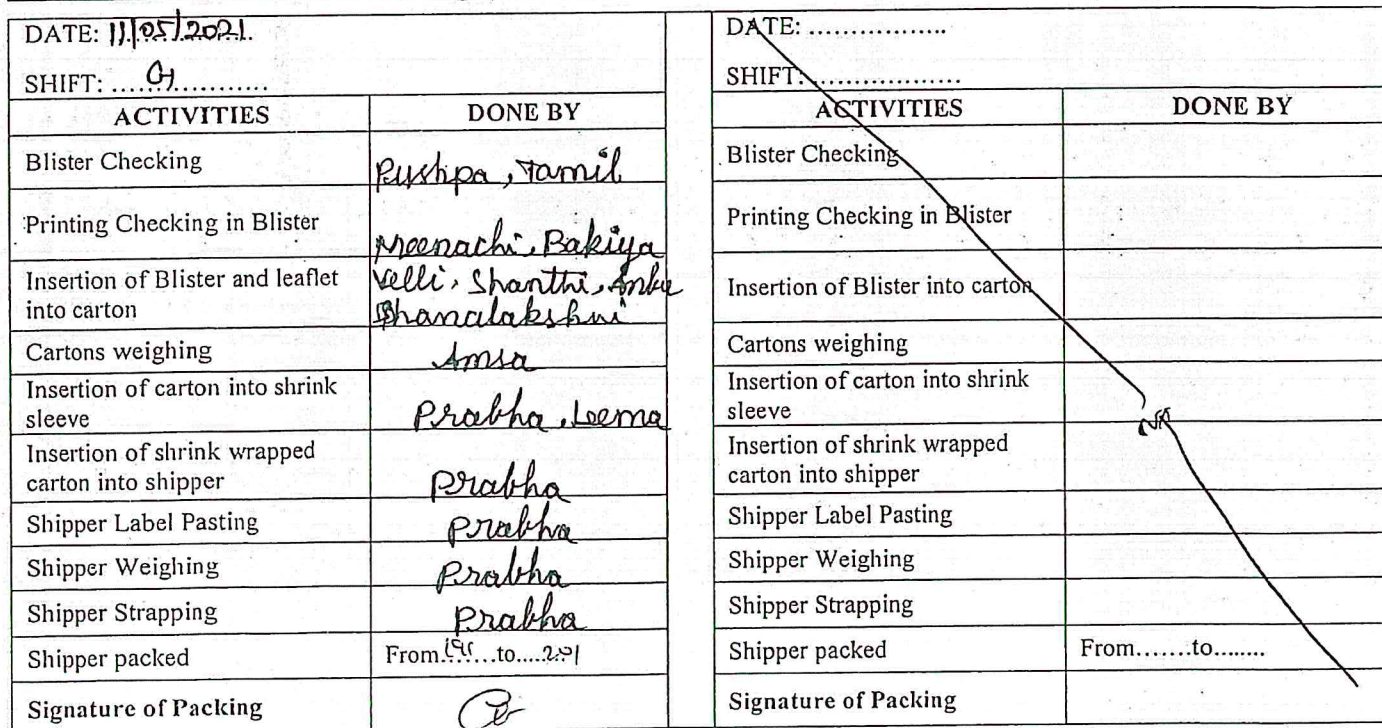 DATE: 11/05/2021
SHIFT: ..................
ACTIVITIES DONE BY
Blister Checking Pushpa, Tamil
Printing Checking in Blister Meenachi, Bakiya
Insertion of Blister and leaflet Velli, Shanthi,
into carton Dhanalakshmi
Cartons weighing Amsa
Insertion of carton into shrink
sleeve Prabha, Leema
Insertion of shrink wrapped
carton into shipper Prabha
Shipper Label Pasting Prabha
Shipper Weighing Prabha
Shipper Strapping Prabha
Shipper packed From.......to.....
Signature of Packing
DATE: .................
SHIFT:...................
ACTIVITIES DONE BY
Blister Checking
Printing Checking in Blister
Insertion of Blister into carton
Cartons weighing
Insertion of carton into shrink
sleeve
NA
Insertion of shrink wrapped
carton into shipper
Shipper Label Pasting
Shipper Weighing
Shipper Strapping
Shipper packed From.......to........
Signature of Packing